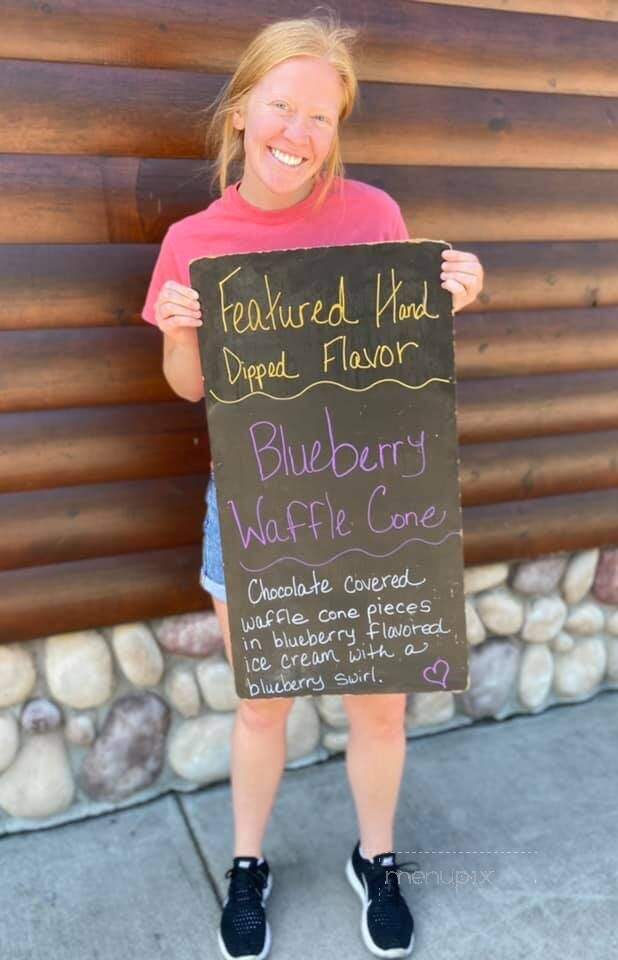 Featured Hand
Dipped Flavor
Blueberry
Waffle Cone
Chocolate covered
waffle cone pieces
in blueberry flavored
ice cream with a
blueberry swirl.
menupix